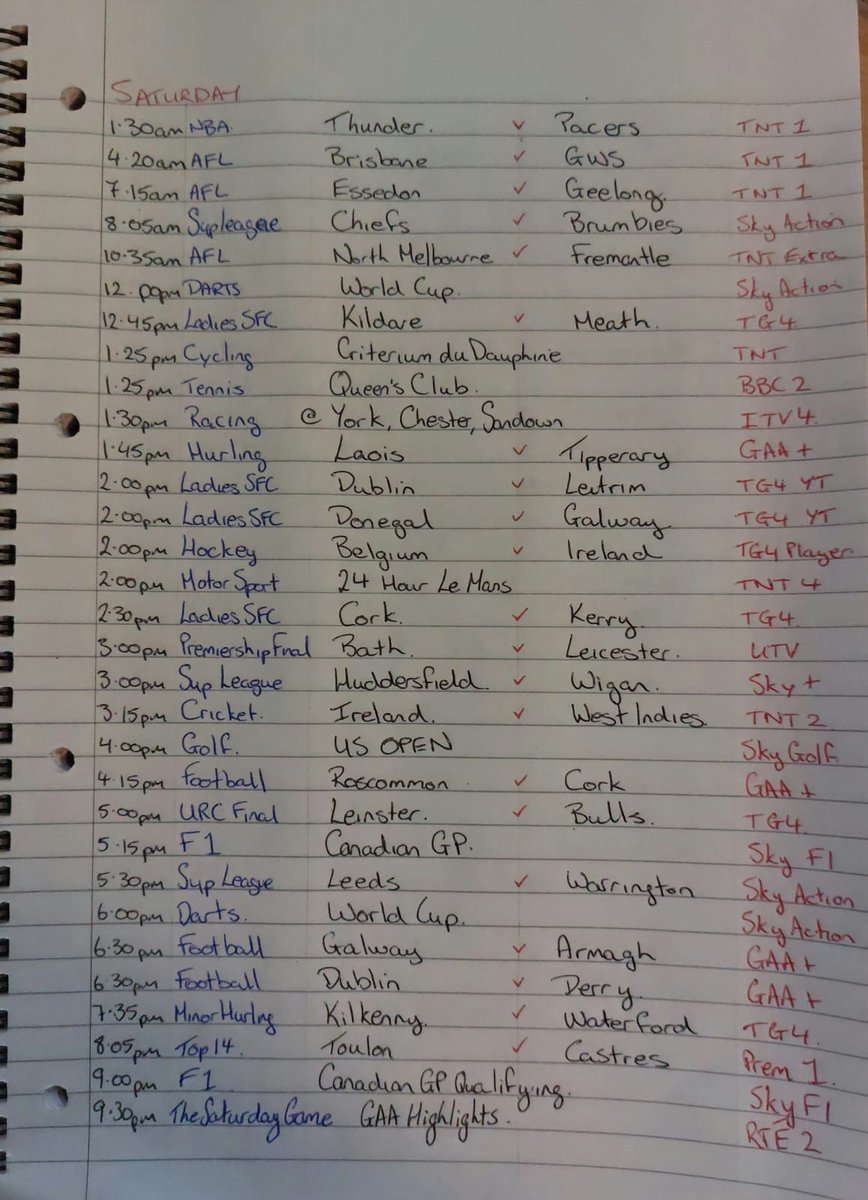 SATURDAY
1.30am NBA. Thunder. v Pacers TNT 1
4.20am AFL Brisbane v GWS TNT 1
7.15am AFL Essedon v Geelong. TNT 1
8.05am Supleague Chiefs v Brumbies Sky Action
10.35am AFL North Melbourne v Fremantle TNT Extra
12.00pm DARTS World Cup. Sky Action
12.45pm Ladies SFC Kildare v Meath. TG4
1.25pm Cycling Criterium du Dauphine TNT
1.25pm Tennis Queen's Club. BBC 2
1.30pm Racing @ York, Chester, Sandown ITV4
1.45pm Hurling Laois v Tipperary GAA +
2.00pm Ladies SFC Dublin v Leitrim TG4 YT
2.00pm Ladies SFC Donegal v Galway. TG4 YT
2.00pm Hockey Belgium v Ireland TG4 Player
2.00pm Motor Sport 24 Hour Le Mans TNT 4
2.30pm Ladies SFC Cork. v Kerry. TG4
3.00pm Premiership Final Bath. v Leicester. UTV
3.00pm Sup League Huddersfield. v Wigan. Sky +
3.15pm Cricket. Ireland. v West Indies. TNT 2
4.00pm Golf. US OPEN Sky Golf
4.15pm Football Roscommon v Cork GAA +
5.00pm URC Final Leinster. v Bulls. TG4
5.15pm F1 Canadian GP. Sky F1
5.30pm Sup League Leeds v Warrington Sky Action
6.00pm Darts. World Cup. Sky Action
6.30pm Football Galway v Armagh GAA +
6.30pm Football Dublin v Derry. GAA +
7.35pm Minor Hurlng Kilkenny. v Waterford TG4.
8.05pm Top 14. Toulon v Castres Prem 1.
9.00pm F1 Canadian GP Qualifying. Sky F1
9.30pm The Saturday Game GAA Highlights. RTÉ 2